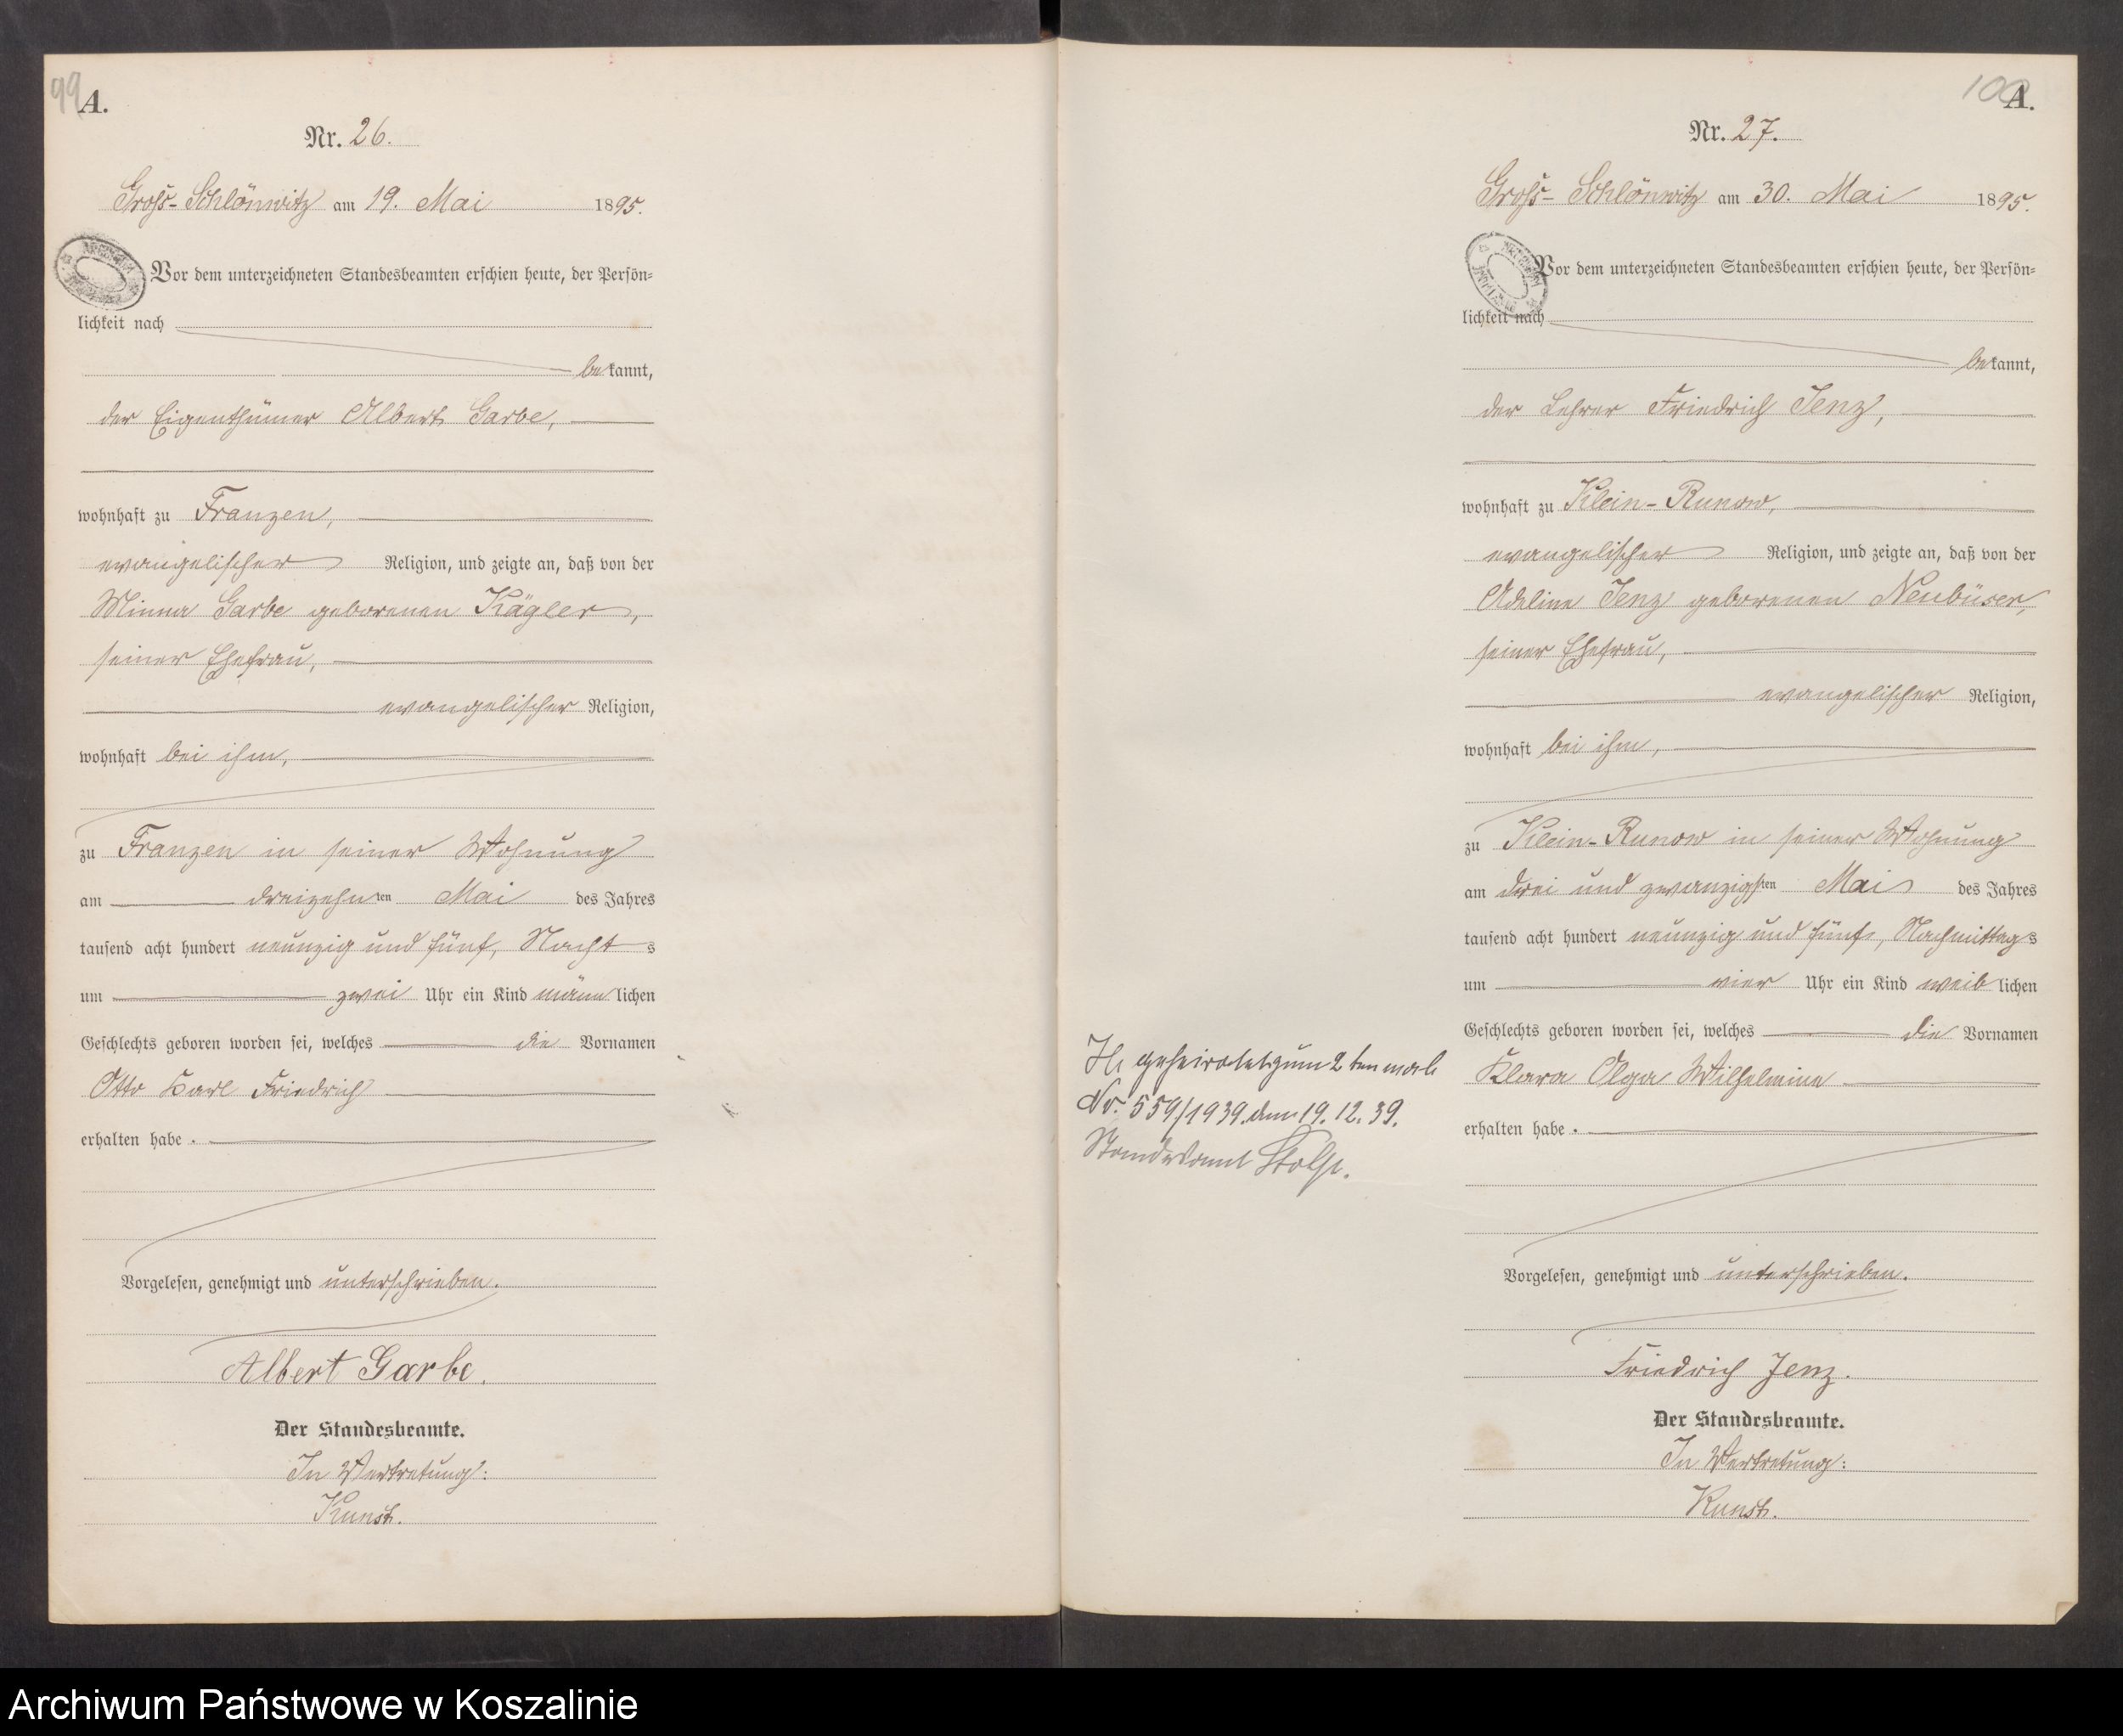 99
A.
Nr. 26.
Groß-Schlönwitz am 19. Mai 1895.
Vor dem unterzeichneten Standesbeamten erschien heute, der Persön=
lichkeit nach
bekannt,
der Eigenthümer Albert Garbe,
wohnhaft zu Franzen,
evangelischer Religion, und zeigte an, daß von der
Minna Garbe geborenen Kägler,
seiner Ehefrau,
evangelischer Religion,
wohnhaft bei ihm,
zu Franzen in seiner Wohnung
am dreizehnten Mai des Jahres
tausend acht hundert neunzig und fünf, Nachts
um zwei Uhr ein Kind männlichen
Geschlechts geboren worden sei, welches die Vornamen
Otto Karl Friedrich
erhalten habe.
Vorgelesen, genehmigt und unterschrieben.
Albert Garbe.
Der Standesbeamte.
In Vertretung:
Kunst.
100
A.
Nr. 27.
Groß-Schlönwitz am 30. Mai 1895.
Vor dem unterzeichneten Standesbeamten erschien heute, der Persön=
lichkeit nach
bekannt,
der Lehrer Friedrich Jenz,
wohnhaft zu Klein-Runow,
evangelischer Religion, und zeigte an, daß von der
Adeline Jenz geborenen Neubüser,
seiner Ehefrau,
evangelischer Religion,
wohnhaft bei ihm,
zu Klein-Runow in seiner Wohnung
am drei und zwanzigsten Mai des Jahres
tausend acht hundert neunzig und fünf, Nachmittags
um vier Uhr ein Kind weiblichen
Geschlechts geboren worden sei, welches die Vornamen
Klara Olga Wilhelmine
erhalten habe.
Vorgelesen, genehmigt und unterschrieben.
Friedrich Jenz.
Der Standesbeamte.
In Vertretung:
Kunst.
geheiratet zum 2ten male
Nr. 559/1939. den 19.12.39.
Standesamt Stolp.
Archiwum Państwowe w Koszalinie